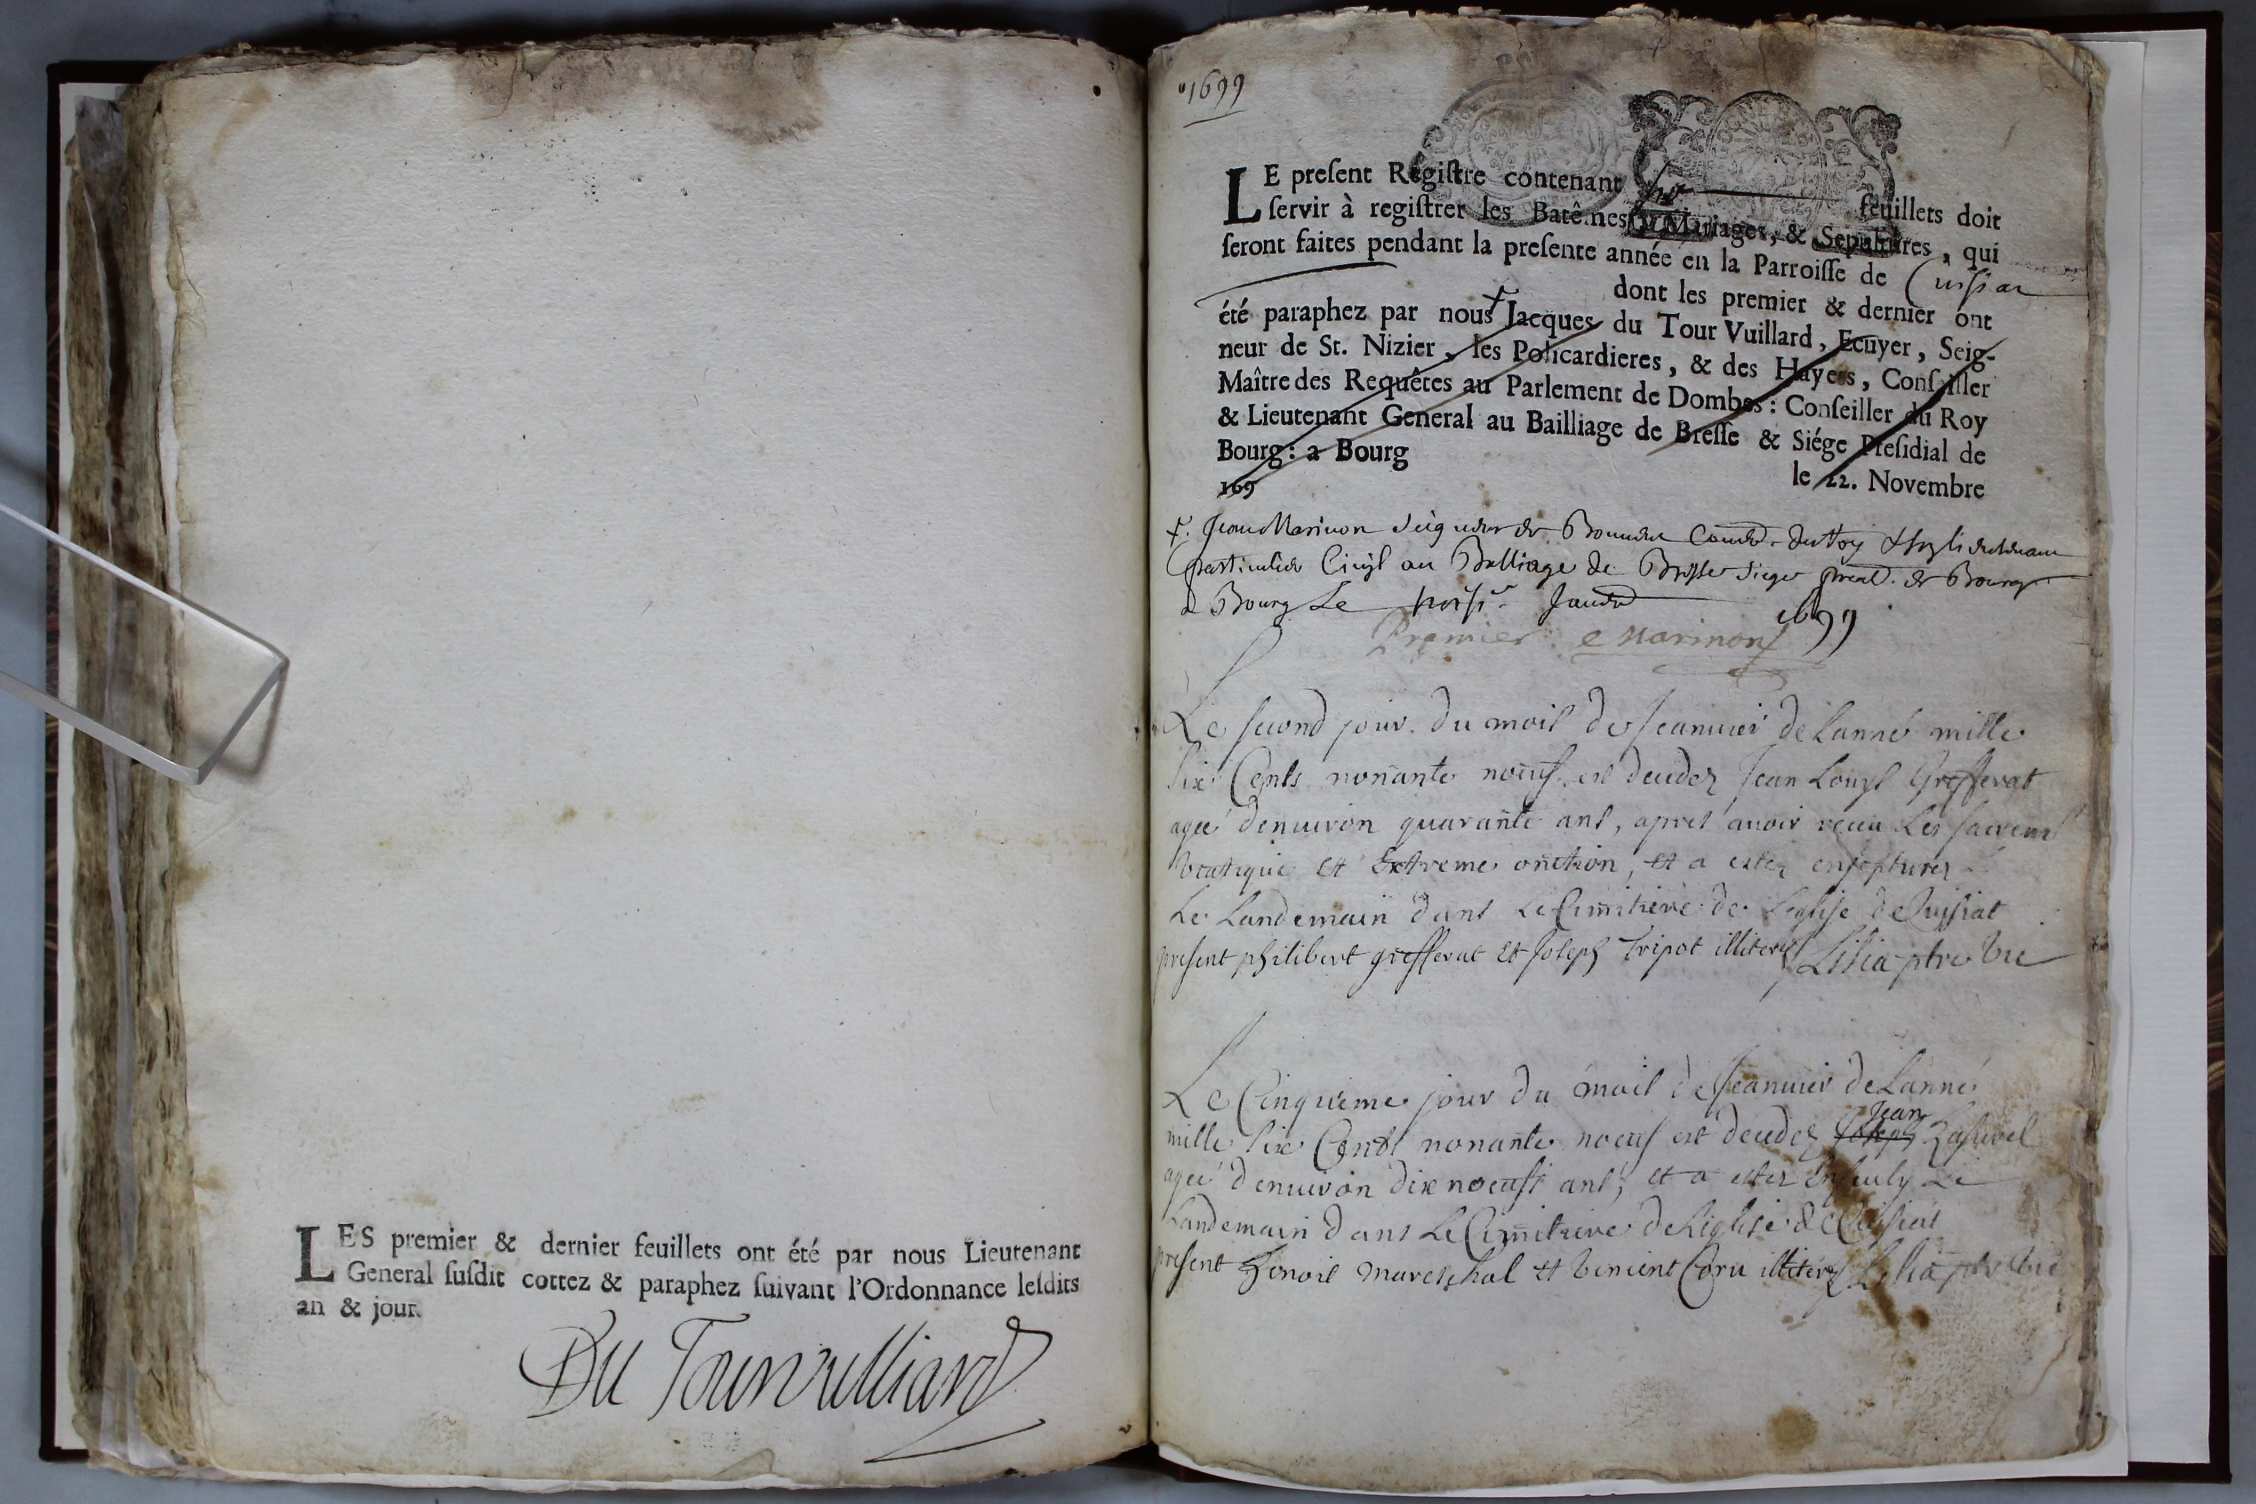 LES premier & dernier feuillets ont été par nous Lieutenant
General susdit cottez & paraphez suivant l'Ordonnance lesdits
an & jour.
Du Tourvuillard
1699
LE present Registre contenant feuillets doit
servir à registrer les Batêmes, Mariages, & Sepultures, qui
seront faites pendant la presente année en la Parroisse de Cuisiat
dont les premier & dernier ont
été paraphez par nous Jacques du Tour Vuillard, Ecuyer, Seig-
neur de St. Nizier, les Policardieres, & des Hayes, Conseiller
Maître des Requêtes au Parlement de Dombes: Conseiller du Roy
& Lieutenant General au Bailliage de Bresse & Siége Presidial de
Bourg: a Bourg le 22. Novembre
169
Jean Marinon Seigneur de
particulier Civil au Balliage de Bresse Siege de Bourg
a Bourg Le 1699
Premier Marinon
Le second jour du mois de Jeanuier de Lanné mille
six Cents nonante noeuf est decedez Jean Louys Grefferat
ageé denuiron quarante ans, apres auoir receu Les
Viatique et Extreme onction, et a estez
Le Landemain dans Le Cimitiere de Leglise de Cuisiat
present philibert grefferat et Joseph Tripot illiteréz Lisia ptre Vic
Le Cinquieme jour du mois de Jeanuier de Lanné
mille six Cents nonante noeuf est decedez Joseph Jean
agee denuiron dix noeuf ans, et a estez Le
Landemain dans Le Cimitiere de Leglise de Cuisiat
present Benoit mareschal et Vincent illiterez Lisia ptre Vic